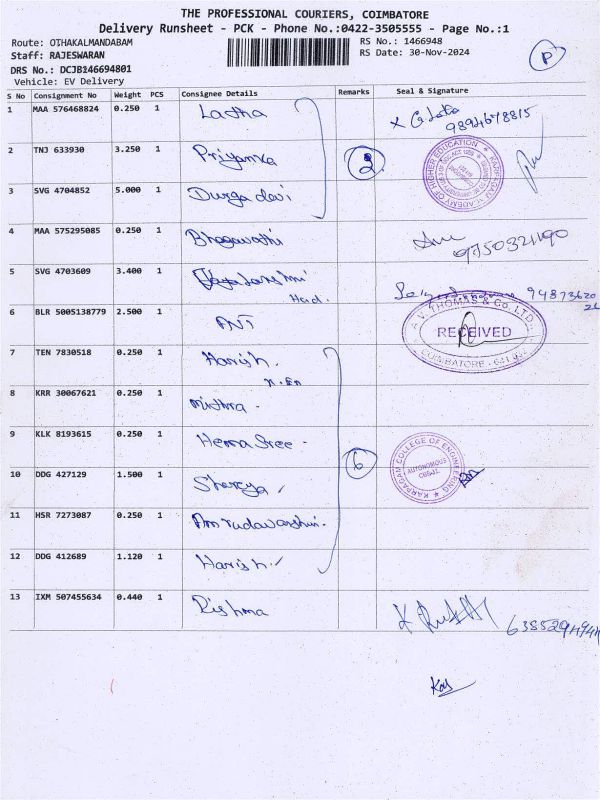 THE PROFESSIONAL COURIERS, COIMBATORE
Delivery Runsheet - PCK - Phone No.:0422-3505555 - Page No.:1
Route: OTHAKALMANDABAM
RS No.: 1466948
Staff: RAJESWARAN
RS Date: 30-Nov-2024
P
DRS No.: DCJB146694801
Vehicle: EV Delivery
S No Consignment No Weight PCS Consignee Details Remarks Seal & Signature
1 MAA 576468824 0.250 1 Latha
9894678815
2 TNJ 633930 3.250 1 Priyanka 2
KARPAGAM ACADEMY OF HIGHER EDUCATION
3 SVG 4704852 5.000 1 Durga devi
4 MAA 575295085 0.250 1 Bhagavathi
9750321190
5 SVG 4703609 3.400 1
6 BLR 5005138779 2.500 1 ANT
A.V. THOMAS & Co. LTD.
RECEIVED
COIMBATORE
7 TEN 7830518 0.250 1 Harish.
8 KRR 30067621 0.250 1 Mithra -
9 KLK 8193615 0.250 1 Hema Sree - 6
KARPAGAM COLLEGE OF ENGINEERING
AUTONOMOUS
10 DDG 427129 1.500 1
11 HSR 7273087 0.250 1
12 DDG 412689 1.120 1 Harish
13 IXM 507455634 0.440 1 Rishma